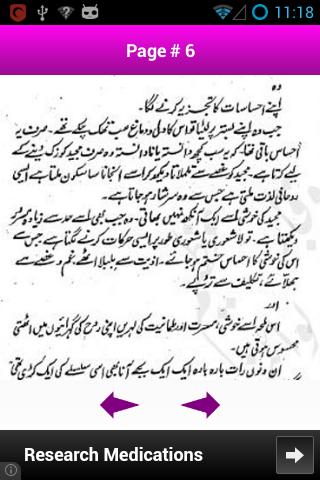 11:18
Page # 6
وہ
اپنے احساسات کا تجزیہ کرنے لگا۔
جب وہ اپنے بستر پر لیٹا تو اس کا دل و دماغ عجب تھک چکے تھے۔ صرف یہ
احساس باقی تھا کہ یہ سب کچھ دانستہ یا نادانستہ وہ صرف مجید کو زک دینے کے
لیے کرتا ہے۔ مجید کو غصے سے تلملاتا دیکھ کر اسے انجانا سا سکون ملتا ہے ایسی
روحانی لذت ملتی ہے جس سے وہ سرشار ہو جاتا ہے۔
مجید کی خوشی اسے ایک آنکھ نہیں بھاتی۔ وہ جب بھی اسے حد سے زیادہ پُرمسرت
دیکھتا ہے۔ تو لاشعوری یا شعوری طور پر ایسی حرکات کرنے لگتا ہے جس سے
اس کی خوشی کا احساس ختم ہو جائے۔ اذیت سے بلبلا اٹھے، غم و غصے سے
جھلائے، تکلیف سے تڑپے۔
اور
اس لمحہ اسے خوشی، مسرت اور طمانیت کی لہریں اپنی روح کی گہرائیوں میں اٹھتی
محسوس ہوتی ہیں۔
ان دنوں رات بارہ بارہ ایک ایک بجے آنا بھی اسی سلسلے کی ایک کڑی تھی
Research Medications